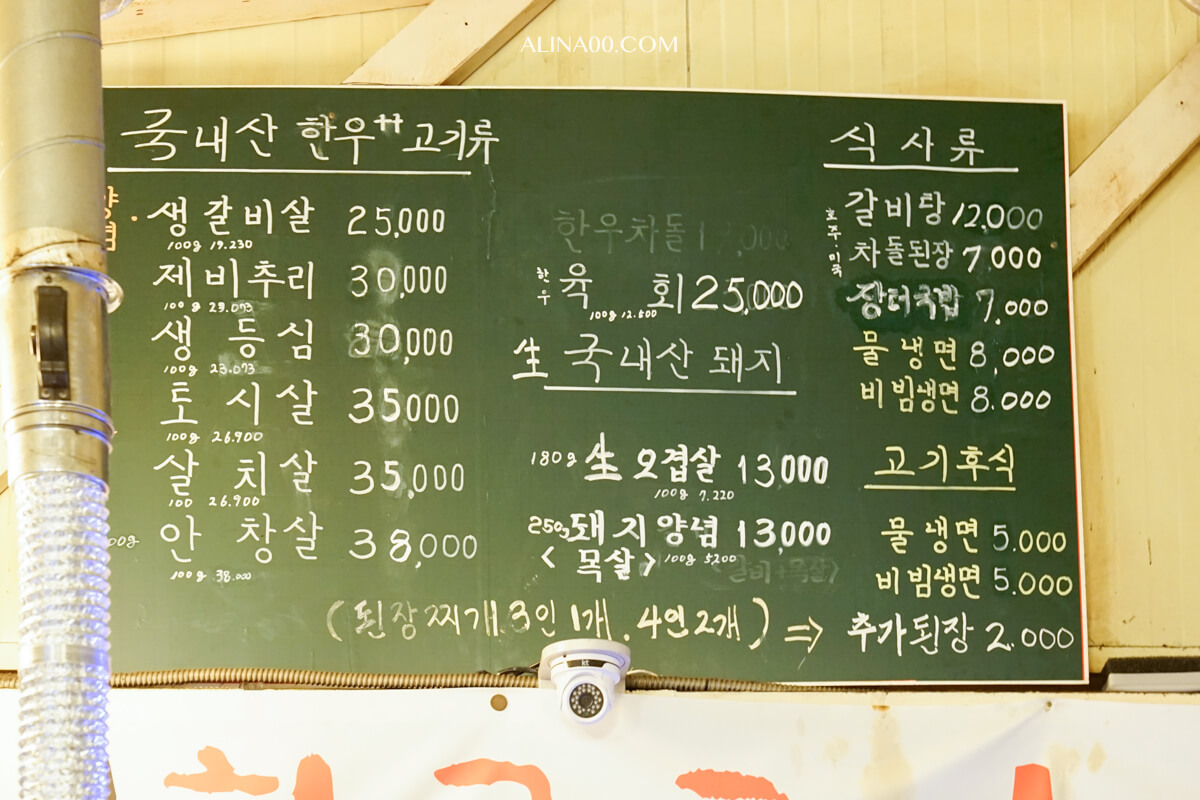 ALINA00.COM
국내산 한우++ 고기류
양념 · 생갈비살 25,000
100g 19.230
제비추리 30,000
100g 23.073
생등심 30,000
100g 23.073
토시살 35000
100g 26.900
살치살 35,000
100 26.900
안창살 38,000
100g 38.000
한우차돌
한우 육회 25,000
生 국내산 돼지
180g 生 오겹살 13,000
100g 7.220
250g 돼지양념 13,000
<목살> 100g 5200
(갈비+목살)
(된장찌개. 3인 1개. 4인 2개) ⇒ 추가된장 2.000
식사류
호주·미국
갈비탕 12,000
차돌된장 7,000
장터국밥 7,000
물냉면 8,000
비빔냉면 8.000
고기후식
물냉면 5.000
비빔냉면 5.000
kt